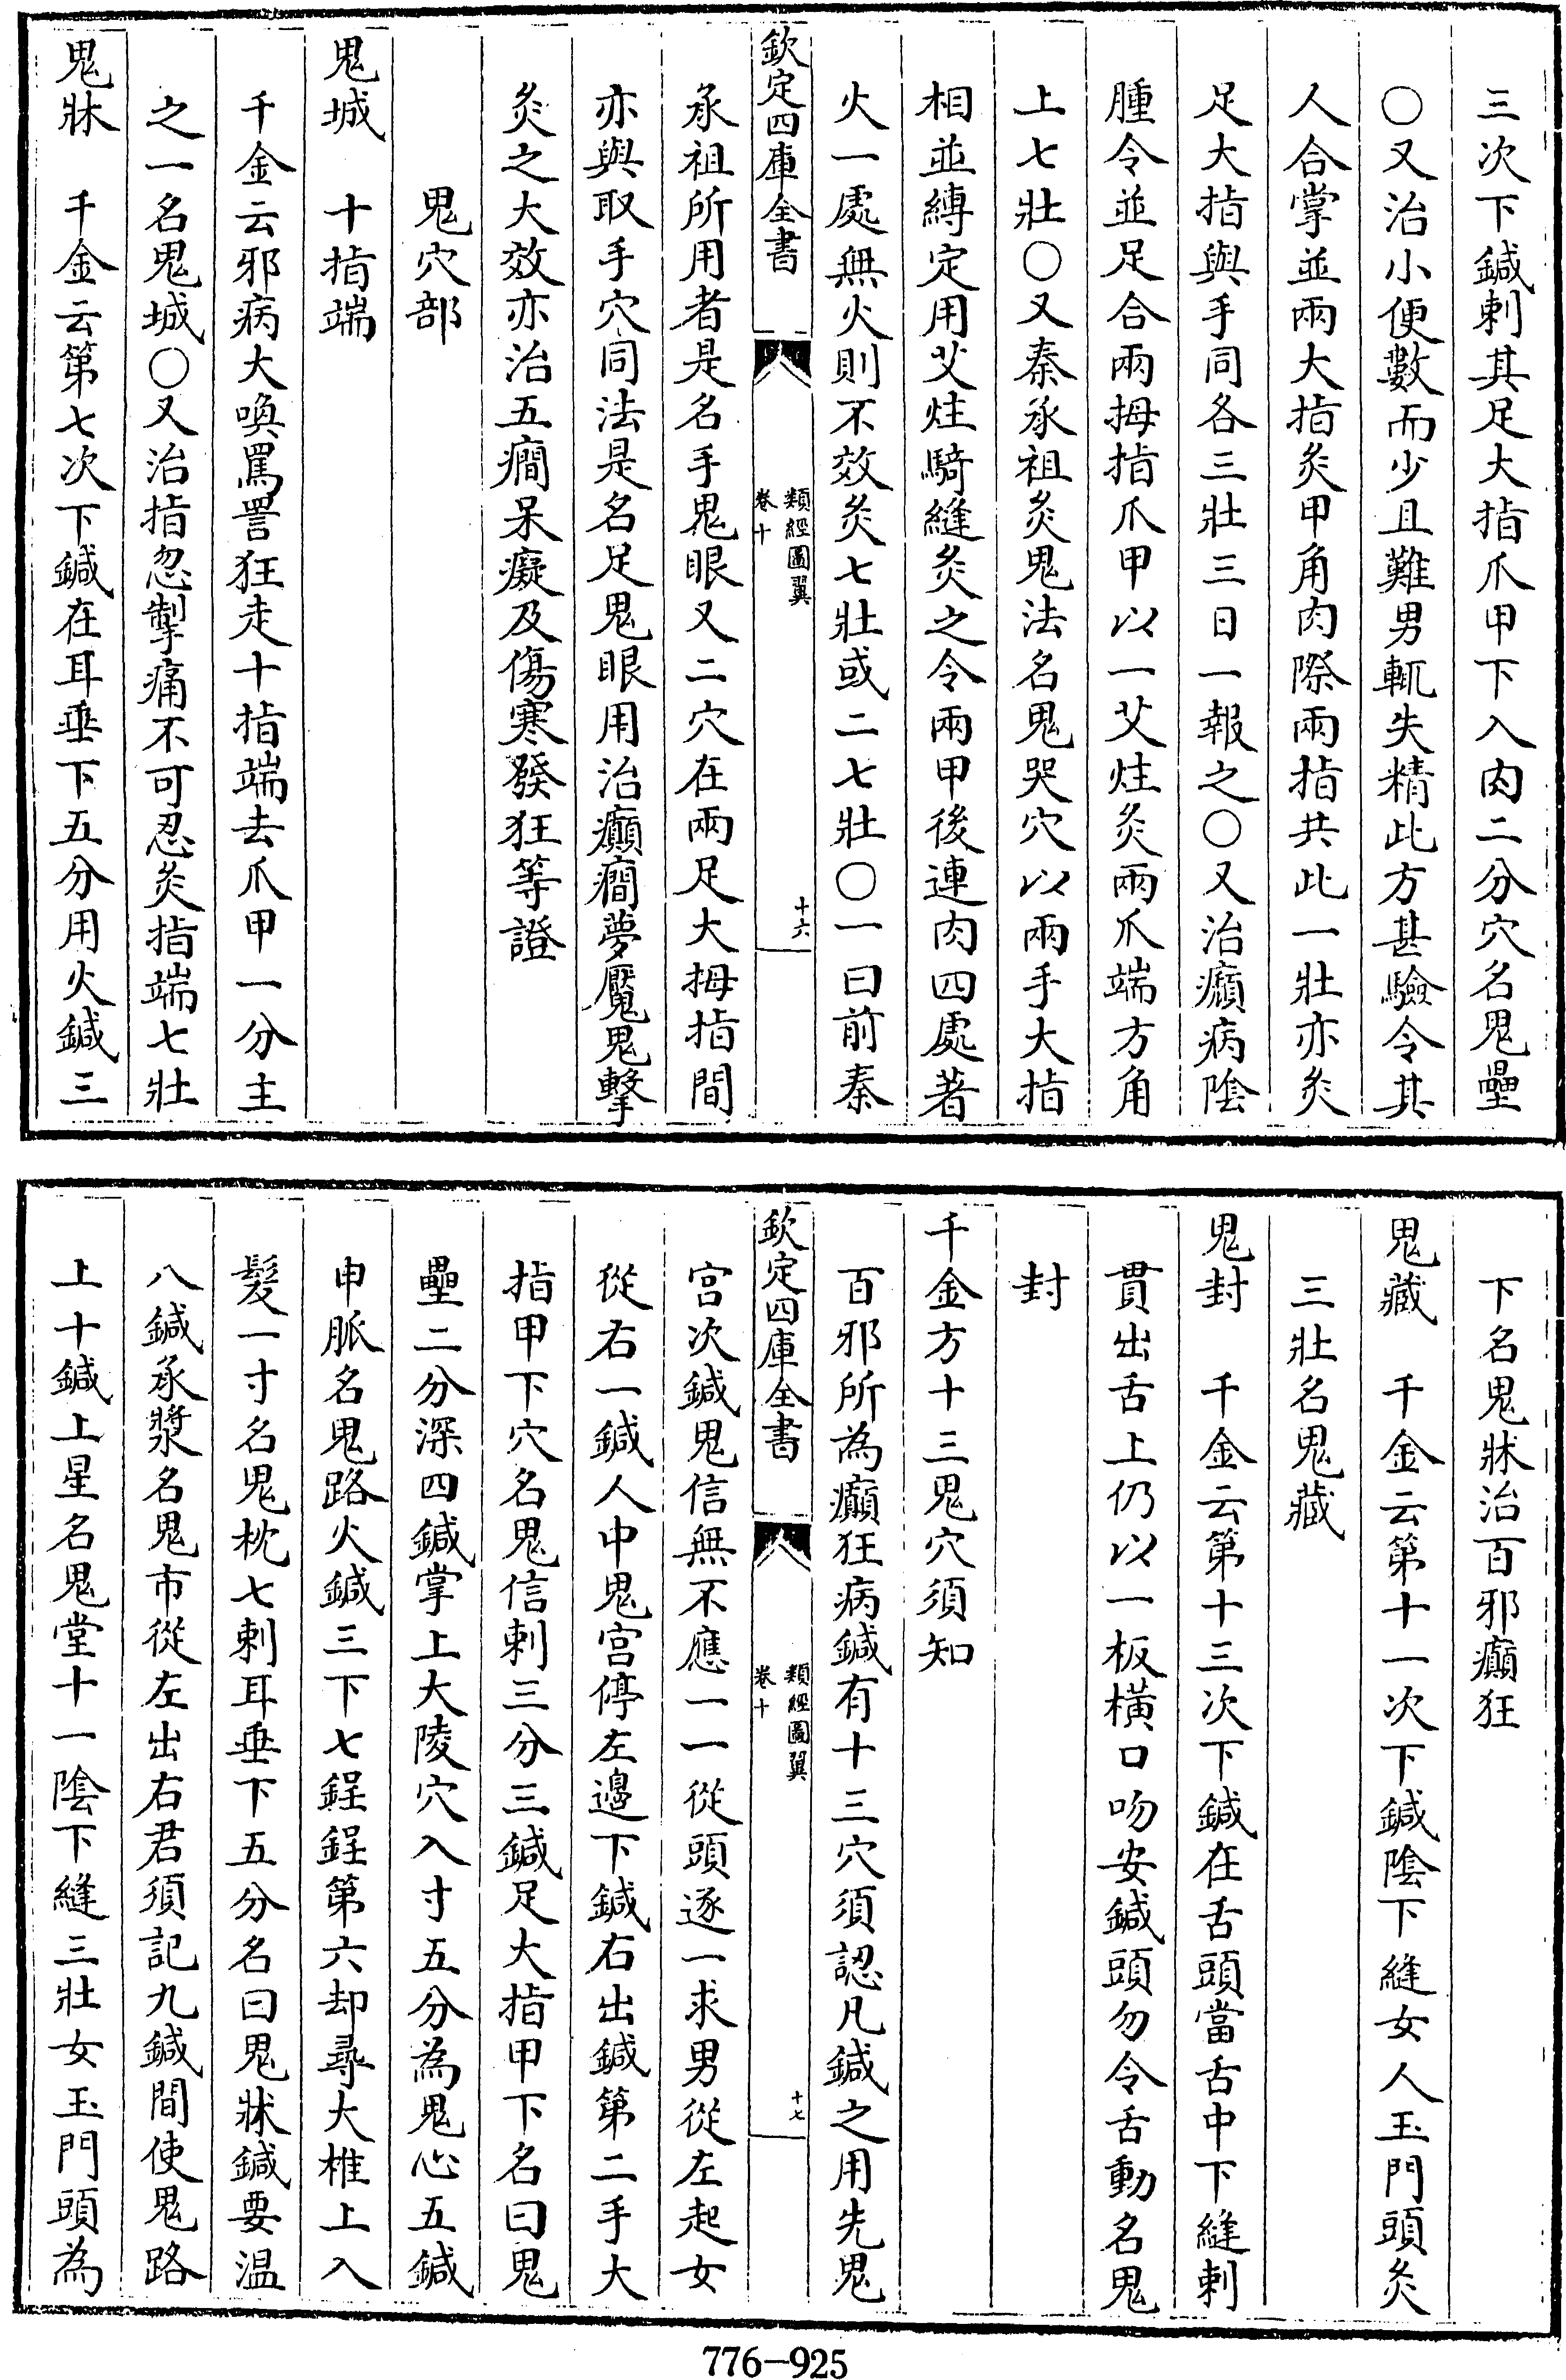 三次下鍼刺其足大指爪甲下入肉二分穴名鬼壘
〇又治小便數而少且難男輒失精此方甚驗令其
人合掌並兩大指灸甲角肉際兩指共此一壯亦灸
足大指與手同各三壯三日一報之〇又治癲病陰
腫令並足合兩拇指爪甲以一艾炷灸兩爪端方角
上七壯〇又秦承祖灸鬼法名鬼哭穴以兩手大指
相並縛定用艾炷騎縫灸之令兩甲後連肉四處著
火一處無火則不效灸七壯或二七壯〇一曰前秦
欽定四庫全書
類經圖翼
卷十
十六
承祖所用者是名手鬼眼又二穴在兩足大拇指間
亦與取手穴同法是名足鬼眼用治癲癇夢魘鬼擊
灸之大效亦治五癇呆癡及傷寒發狂等證
鬼穴部
鬼城 十指端
千金云邪病大喚罵詈狂走十指端去爪甲一分主
之一名鬼城〇又治指忽掣痛不可忍灸指端七壯
鬼牀 千金云第七次下鍼在耳垂下五分用火鍼三
下名鬼牀治百邪癲狂
鬼藏 千金云第十一次下鍼陰下縫女人玉門頭灸
三壯名鬼藏
鬼封 千金云第十三次下鍼在舌頭當舌中下縫刺
貫出舌上仍以一板橫口吻安鍼頭勿令舌動名鬼
封
千金方十三鬼穴須知
百邪所為癲狂病鍼有十三穴須認凡鍼之用先鬼
欽定四庫全書
類經圖翼
卷十
十七
宮次鍼鬼信無不應一一從頭逐一求男從左起女
從右一鍼人中鬼宮停左邊下鍼右出鍼第二手大
指甲下穴名鬼信刺三分三鍼足大指甲下名曰鬼
壘二分深四鍼掌上大陵穴入寸五分為鬼心五鍼
申脈名鬼路火鍼三下七鋥鋥第六却尋大椎上入
髮一寸名鬼枕七刺耳垂下五分名曰鬼牀鍼要温
八鍼承漿名鬼市從左出右君須記九鍼間使鬼路
上十鍼上星名鬼堂十一陰下縫三壯女玉門頭為
776-925